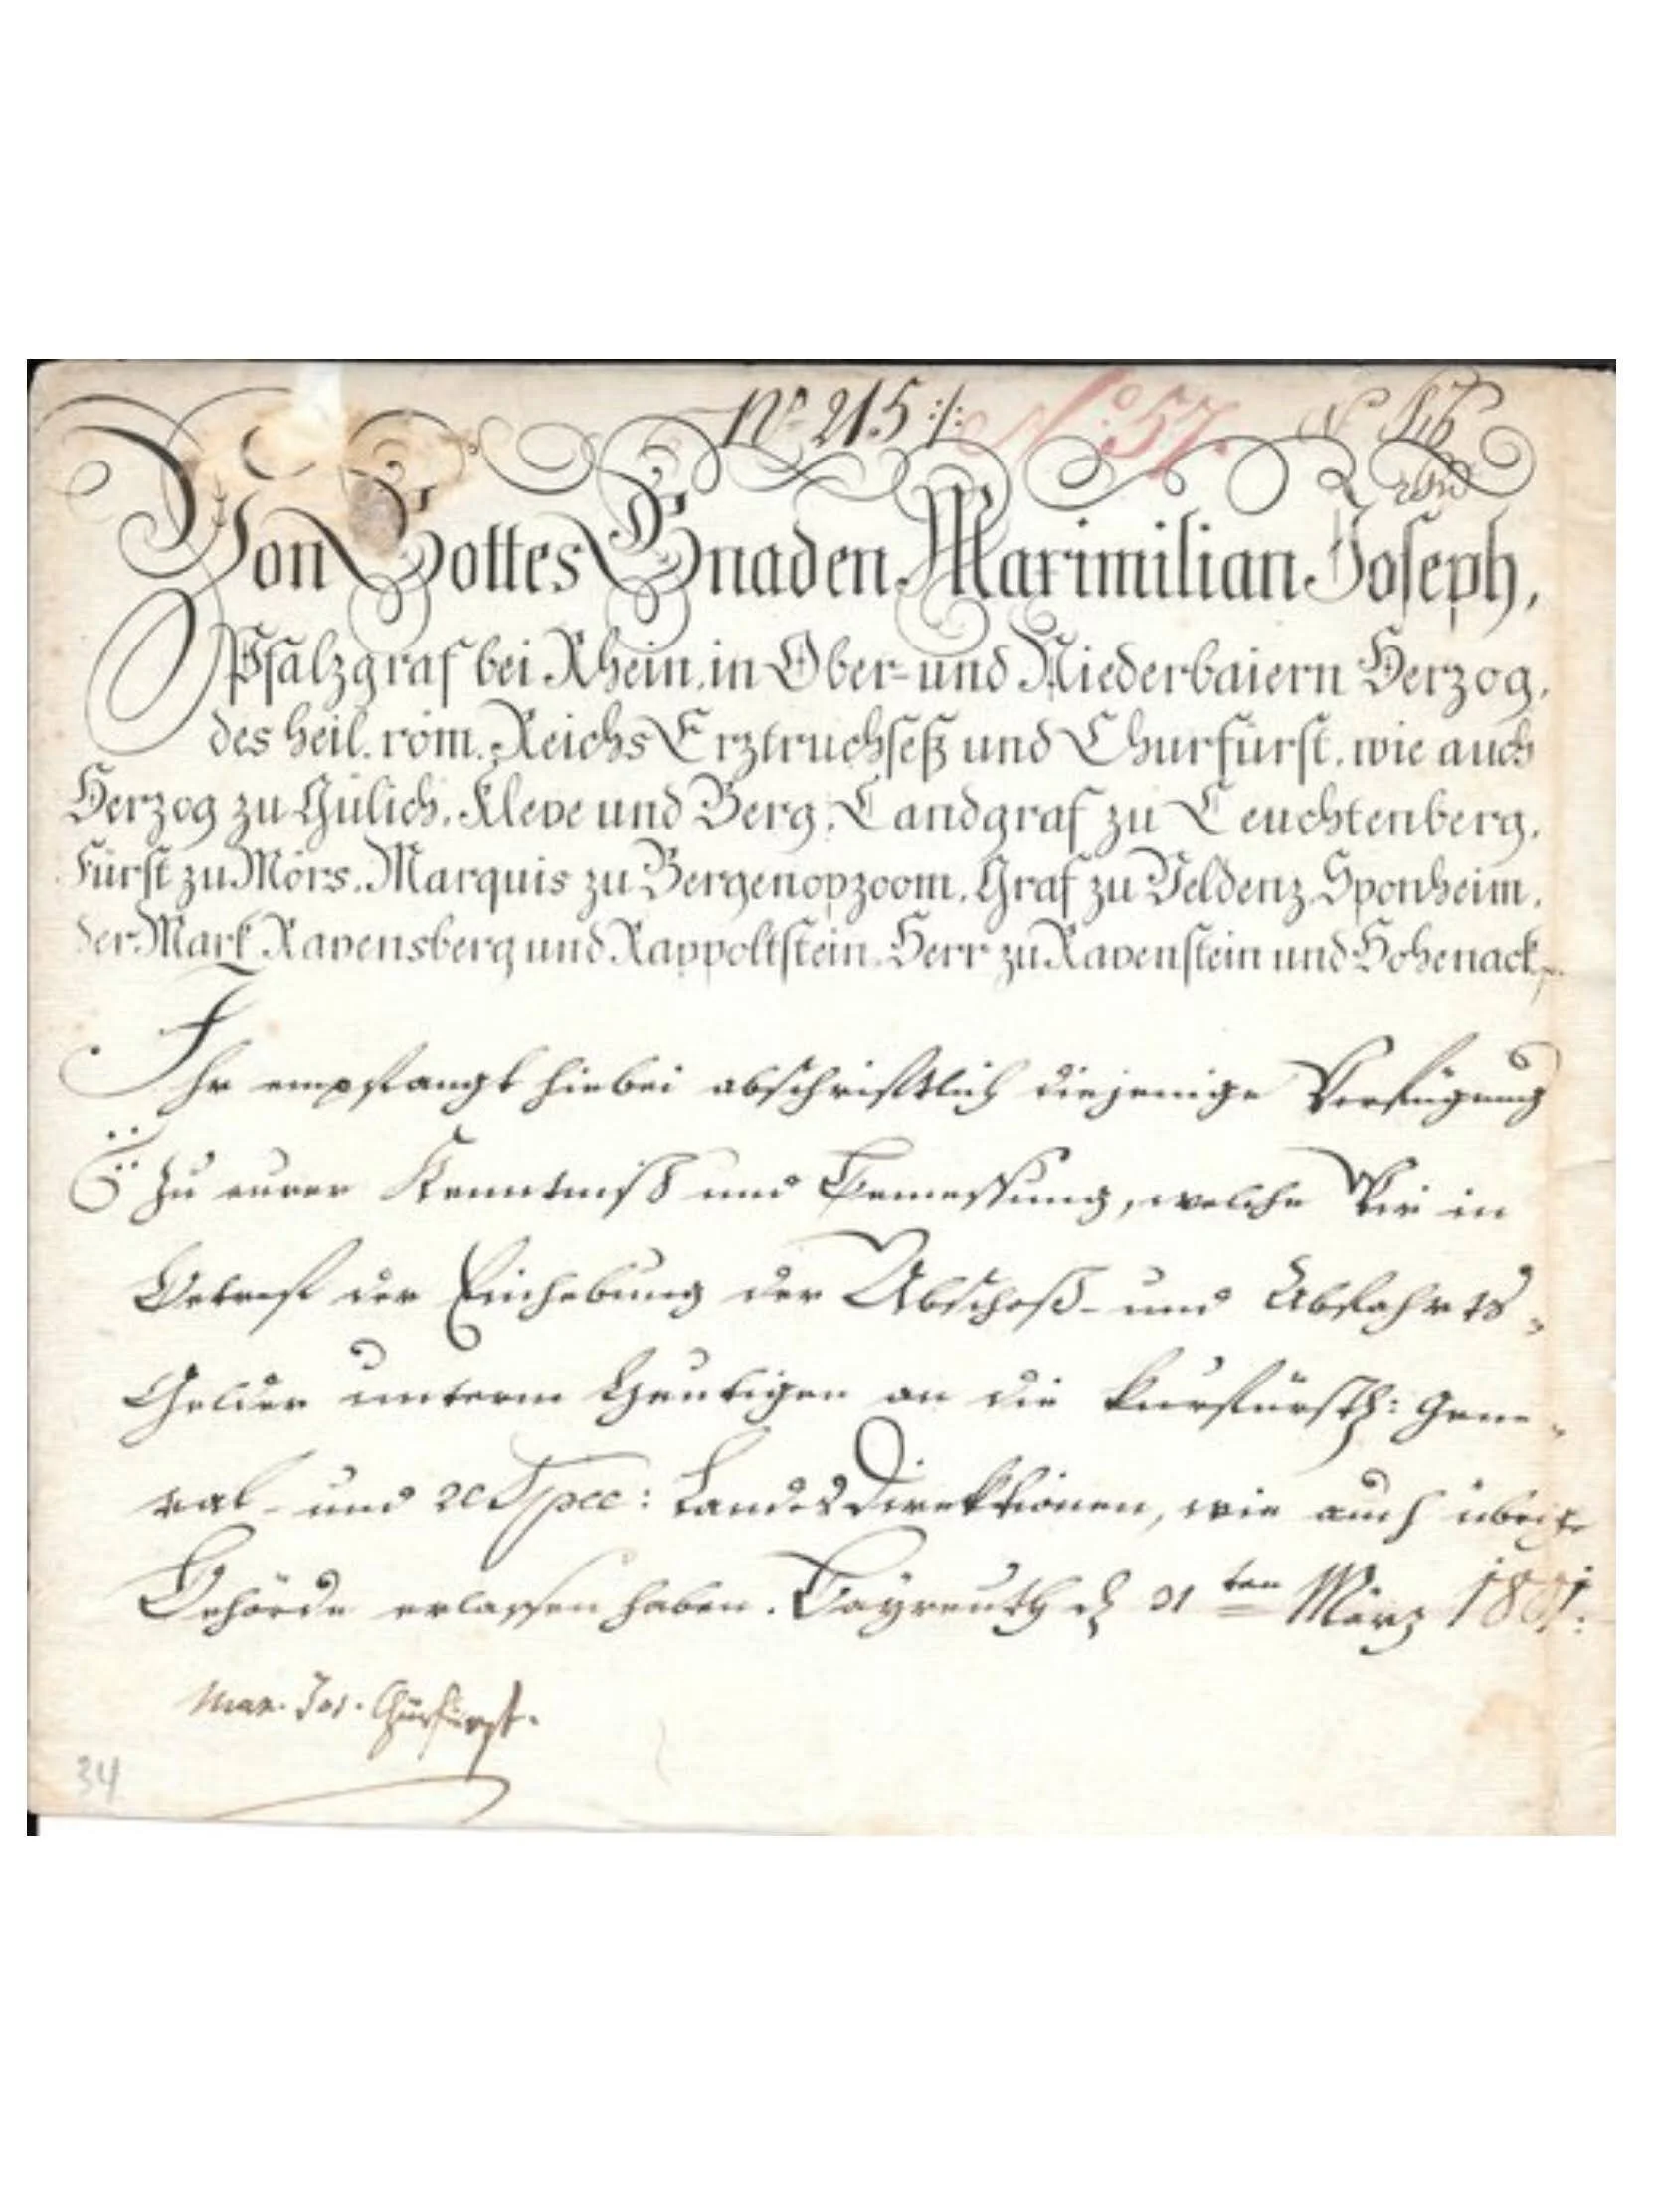 Nº 215 :/: Nº 57.
Von Gottes Gnaden Maximilian Joseph,
Pfalzgraf bei Rhein, in Ober- und Niederbaiern Herzog,
des heil. röm. Reichs Erztruchseß und Churfürst, wie auch
Herzog zu Gülich, Kleve und Berg, Landgraf zu Leuchtenberg,
Fürst zu Mörs, Marquis zu Bergenopzoom, Graf zu Veldenz, Sponheim,
der Mark, Ravensberg und Rappoltstein, Herr zu Ravenstein und Hohenack
Ihr empfangt hiebei abschriftlich diejenige Verfügung
zu eurer Kenntniß und Bemessung, welche Wir in
Betreff der Einhebung der Abschoß- und Abfahrts-
Gelder unterm Heutigen an die kurfürstl: Gene-
ral- und Spec: Landes Direktionen, wie auch übrige
Behörde erlassen haben. Bayreuth d 31ten März 1801.
Max. Jos. Churfürst.
34